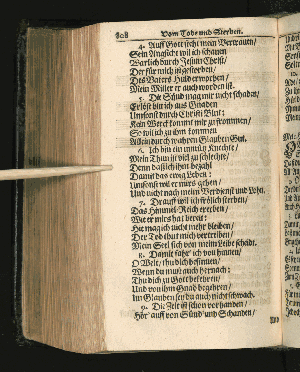 808 Vom Tode und Sterben.
4. Auff Gott steht mein Vertrauen/
Sein Angesicht wil ich schauen
Warlich durch Jesum Christ/
Der für mich ist gestorben/
Des Vaters Huld erworben/
Mein Mitler er auch worden ist.
5. Die Sünd mag mir nicht schaden/
Erlöst bin ich aus Gnaden
Umsonst durch Christi Blut:
Kein Werck kommt mir zu frommen/
So wil ich zu ihm kommen
Allein durch wahren Glauben gut.
6. Ich bin ein unnütz Knechte/
Mein Thun ist viel zu schlechte/
Denn daß ich ihm bezahl
Damit das ewig Leben:
Umsonst wil er mirs geben/
Und nicht nach meim Verdienst und Lohn.
7. Drauff wil ich frölich sterben/
Das Himmel-Reich ererben/
Wie er mirs hat bereit:
Hie mag ich nicht mehr bleiben/
Der Tod thut mich vertreiben/
Mein Seel sich von meim Leibe scheidt.
8. Damit fahr ich von hinnen/
O Welt/ thu dich besinnen/
Wenn du must auch hernach:
Thu dich zu Gott bekehren/
Und von ihm Gnad begehren/
Im Glauben sey du auch nicht schwach.
9. Die Zeit ist schon vorhanden/
Hör auff von Sünd und Schanden/
Und